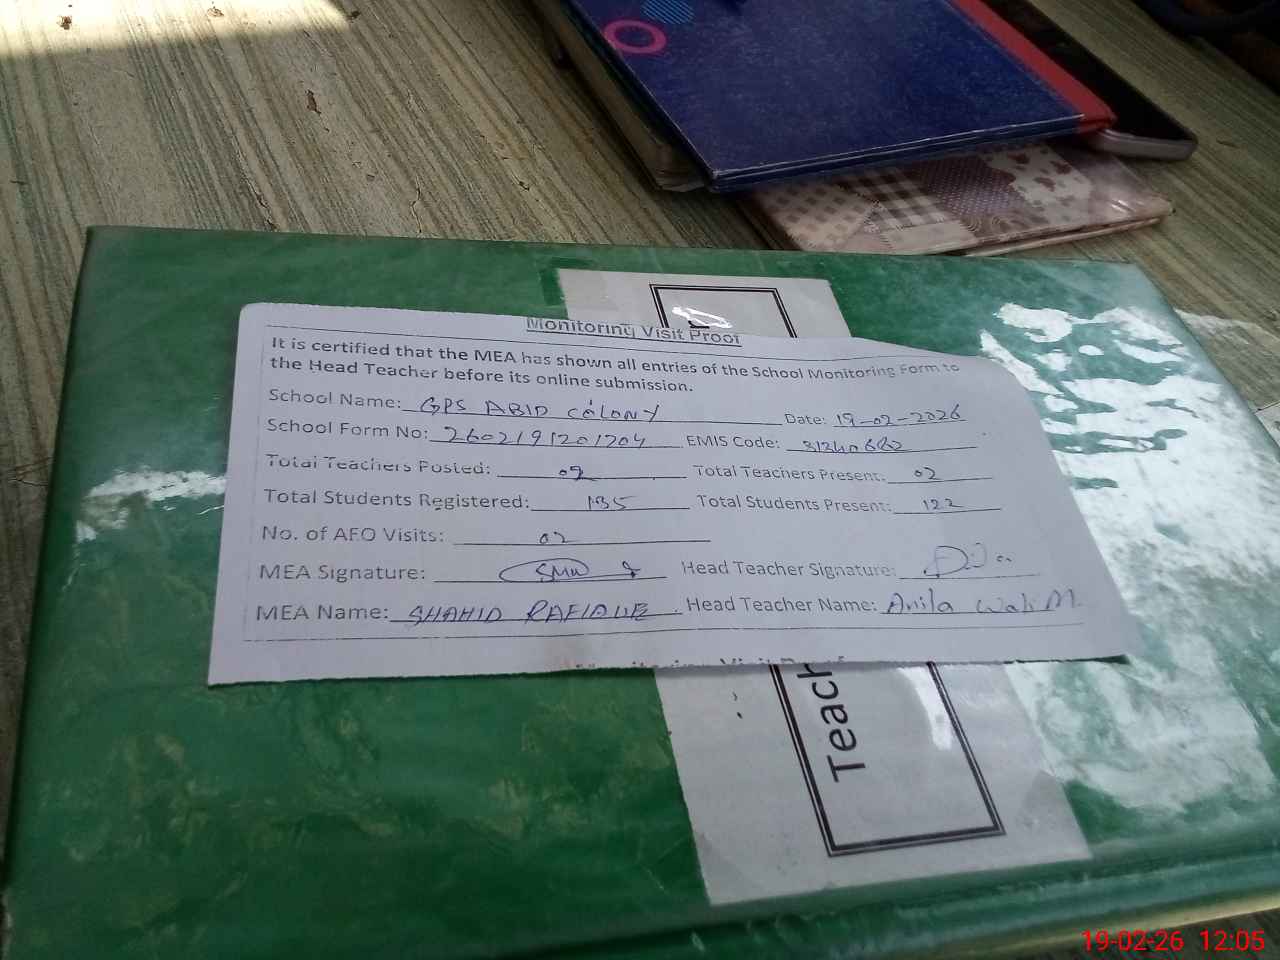 Monitoring Visit Proof
It is certified that the MEA has shown all entries of the School Monitoring Form to
the Head Teacher before its online submission.
School Name: GPS ABID COLONY Date: 19-02-2026
School Form No: 2602191201704 EMIS Code:
Total Teachers Posted: Total Teachers Present: 02
Total Students Registered: 135 Total Students Present: 122
No. of AEO Visits: 02
MEA Signature: Head Teacher Signature:
MEA Name: SHAHID RAFIQUE Head Teacher Name: Anila
Teach
19-02-26 12:05